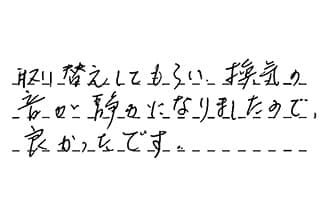 取り替えしてもらい、換気の
音が静かになりましたので、
良かったです。